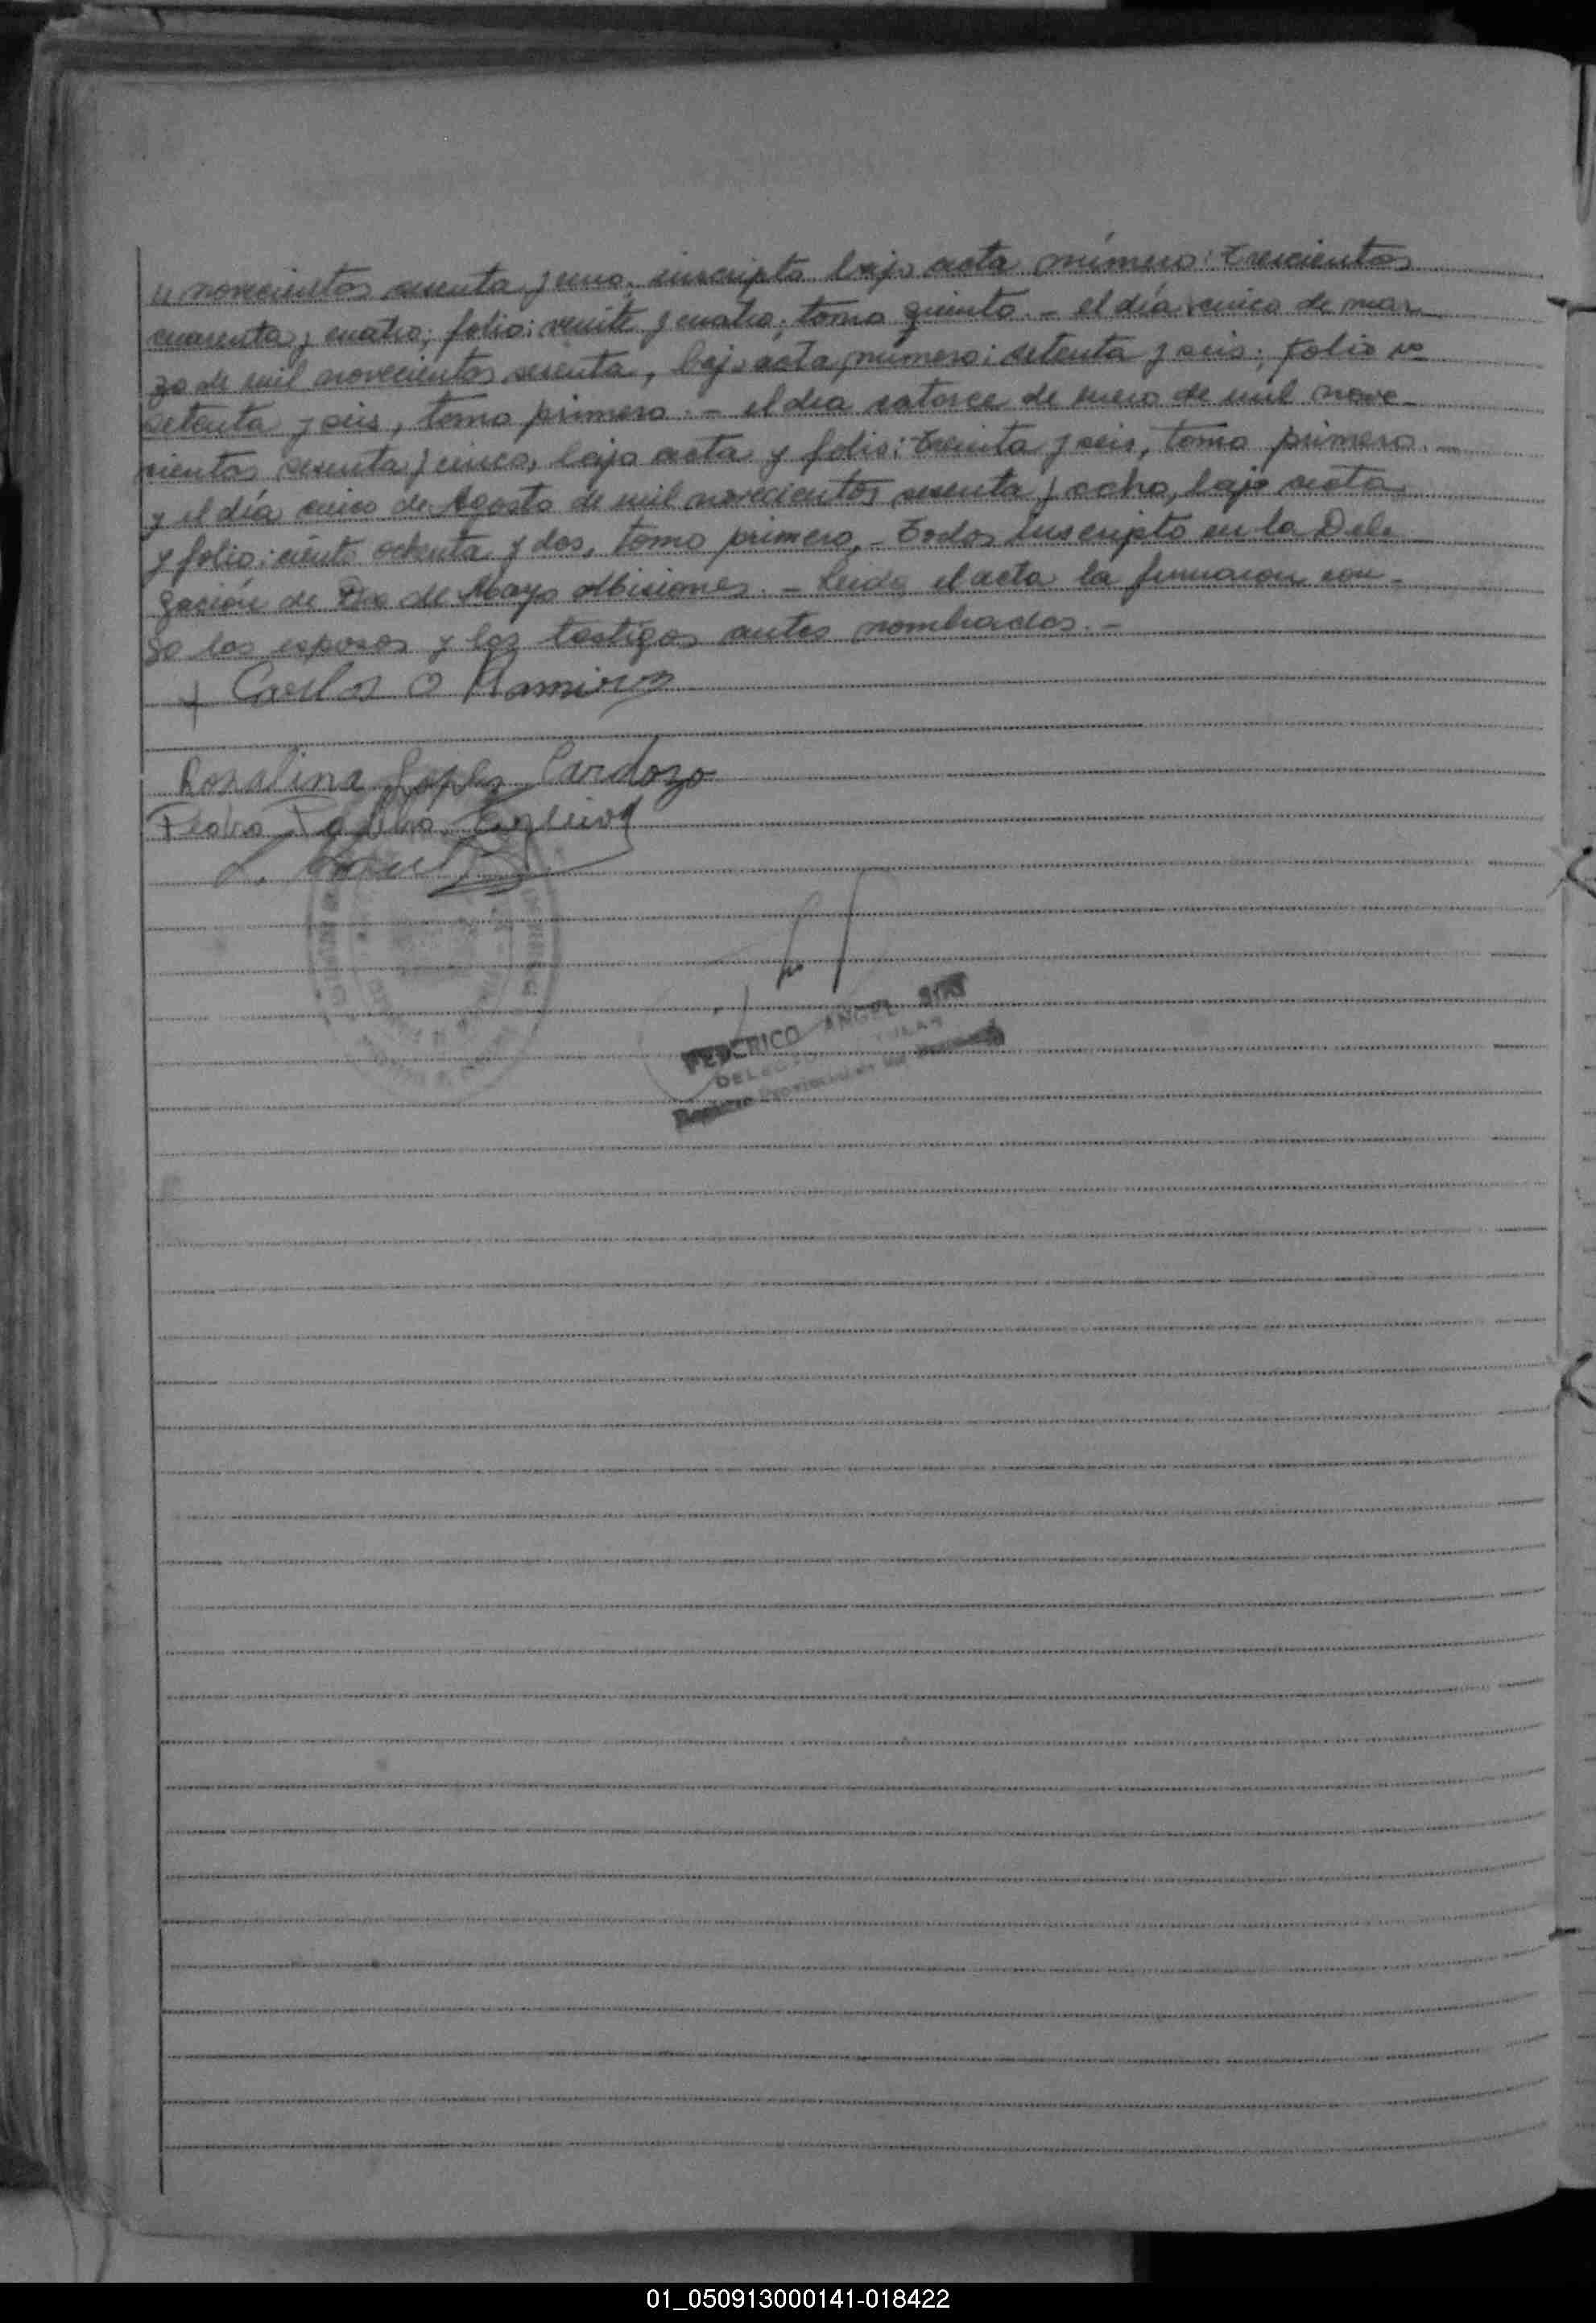 " novecientos sesenta y uno, inscripto bajo acta número: trescientos
cuarenta y cuatro; folio: veinte y cuatro; tomo quinto. - el día cinco de mar
zo de mil novecientos sesenta, bajo acta número: setenta y seis; folio no
setenta y seis, tomo primero. - el dia catorce de enero de mil nove-
cientos sesenta y cinco, bajo acta y folio: treinta y seis, tomo primero. -
y el día cinco de Agosto de mil novecientos sesenta y ocho, bajo acta
y folio: ciento ochenta y dos, tomo primero, - todos inscripto en la Dele
gación de Dos de Mayo Misiones. - Leida el acta la firmaron con-
go los esposos y los testigos antes nombrados. -
+ Carlos O Ramirez
Rosalina Lopez Cardozo
Pedro
FEDERICO ANGEL
DELEGADO TITULAR
Registro Provincial de las Personas
01_050913000141-018422